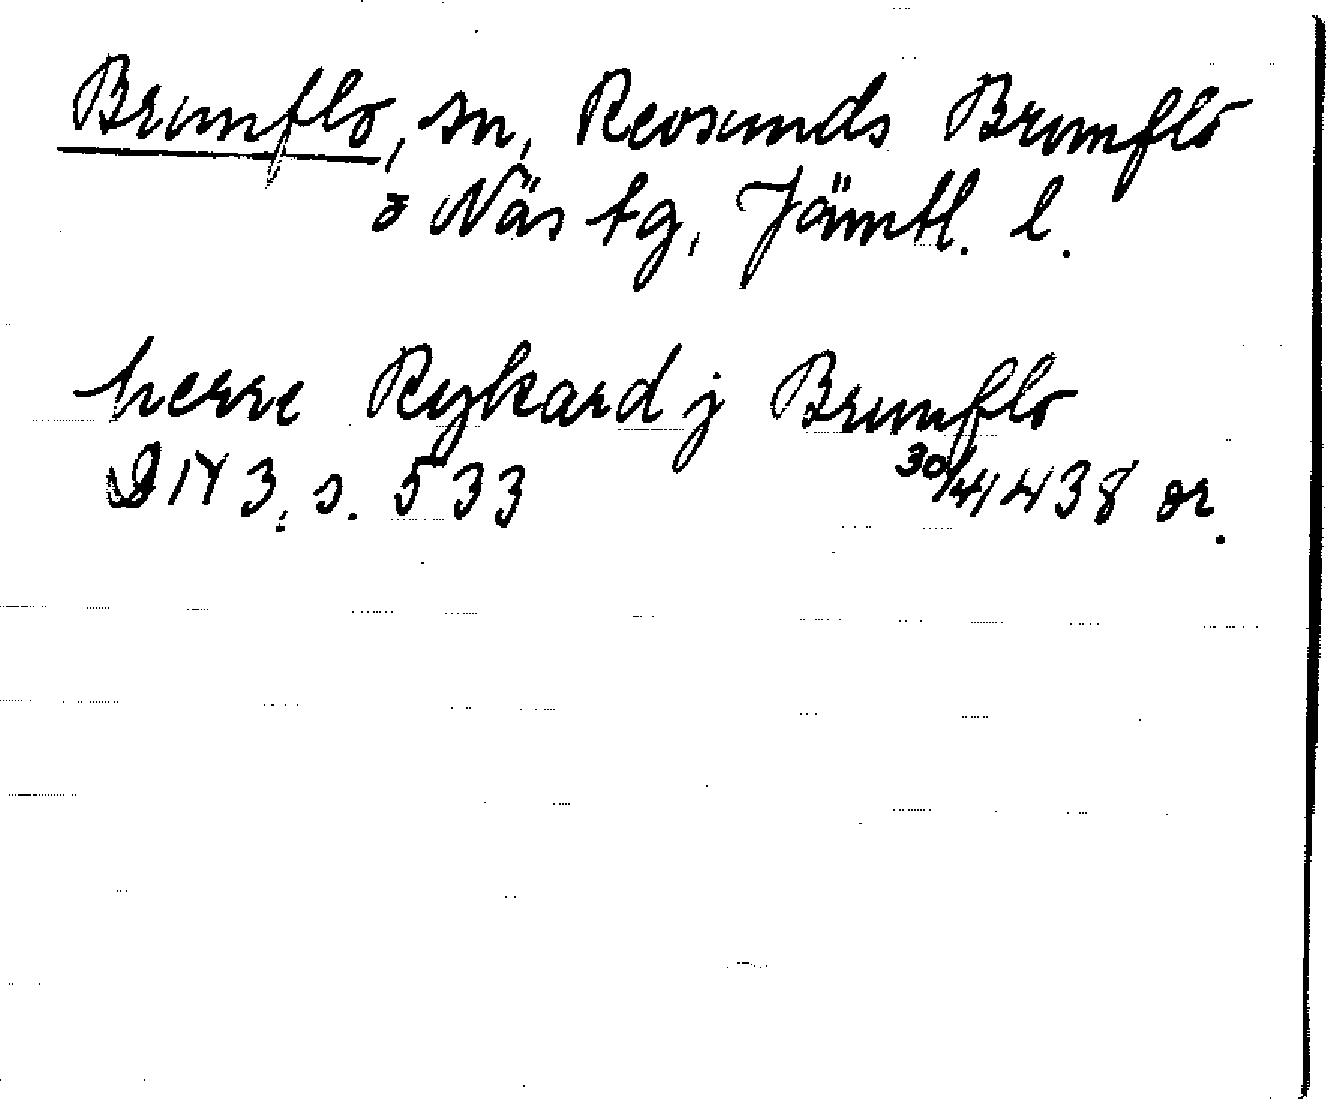 Brunflo, sn, Revsunds Brunflo
o Näs tg, Jämtl. l.
herre Rykard j Brunflo
DN 3, s. 533 30/4 1438 or.